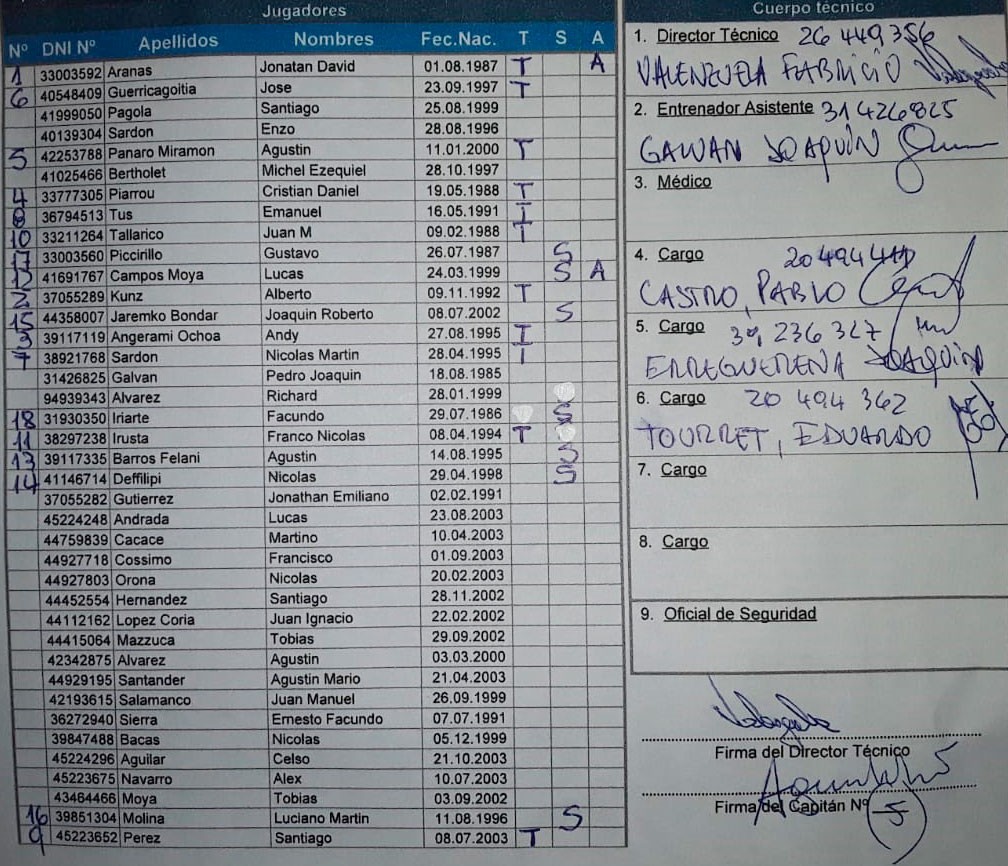 Jugadores
Nº DNI Nº Apellidos Nombres Fec.Nac. T S A
1 33003592 Aranas Jonatan David 01.08.1987 T A
6 40548409 Guerricagoitia Jose 23.09.1997 T
41999050 Pagola Santiago 25.08.1999
40139304 Sardon Enzo 28.08.1996
5 42253788 Panaro Miramon Agustin 11.01.2000 T
41025466 Bertholet Michel Ezequiel 28.10.1997
4 33777305 Piarrou Cristian Daniel 19.05.1988 T
8 36794513 Tus Emanuel 16.05.1991 T
10 33211264 Tallarico Juan M 09.02.1988 T
17 33003560 Piccirillo Gustavo 26.07.1987 S
12 41691767 Campos Moya Lucas 24.03.1999 S A
2 37055289 Kunz Alberto 09.11.1992 T
15 44358007 Jaremko Bondar Joaquin Roberto 08.07.2002 S
3 39117119 Angerami Ochoa Andy 27.08.1995 T
7 38921768 Sardon Nicolas Martin 28.04.1995 T
31426825 Galvan Pedro Joaquin 18.08.1985
94939343 Alvarez Richard 28.01.1999
18 31930350 Iriarte Facundo 29.07.1986 S
11 38297238 Irusta Franco Nicolas 08.04.1994 T
13 39117335 Barros Felani Agustin 14.08.1995 S
14 41146714 Deffilipi Nicolas 29.04.1998 S
37055282 Gutierrez Jonathan Emiliano 02.02.1991
45224248 Andrada Lucas 23.08.2003
44759839 Cacace Martino 10.04.2003
44927718 Cossimo Francisco 01.09.2003
44927803 Orona Nicolas 20.02.2003
44452554 Hernandez Santiago 28.11.2002
44112162 Lopez Coria Juan Ignacio 22.02.2002
44415064 Mazzuca Tobias 29.09.2002
42342875 Alvarez Agustin 03.03.2000
44929195 Santander Agustin Mario 21.04.2003
42193615 Salamanco Juan Manuel 26.09.1999
36272940 Sierra Ernesto Facundo 07.07.1991
39847488 Bacas Nicolas 05.12.1999
45224296 Aguilar Celso 21.10.2003
45223675 Navarro Alex 10.07.2003
43464466 Moya Tobias 03.09.2002
16 39851304 Molina Luciano Martin 11.08.1996 S
9 45223652 Perez Santiago 08.07.2003 T
Cuerpo técnico
1. Director Técnico 26 449 356
VALENZUELA FABRICIO
2. Entrenador Asistente 31426825
GALVAN JOAQUÍN
3. Médico
4. Cargo
CASTRO, PABLO
5. Cargo 39 236 327
ERREGUERENA JOAQUÍN
6. Cargo 20 494 362
TOURRET, EDUARDO
7. Cargo
8. Cargo
9. Oficial de Seguridad
Firma del Director Técnico
Firma del Capitán Nº 5